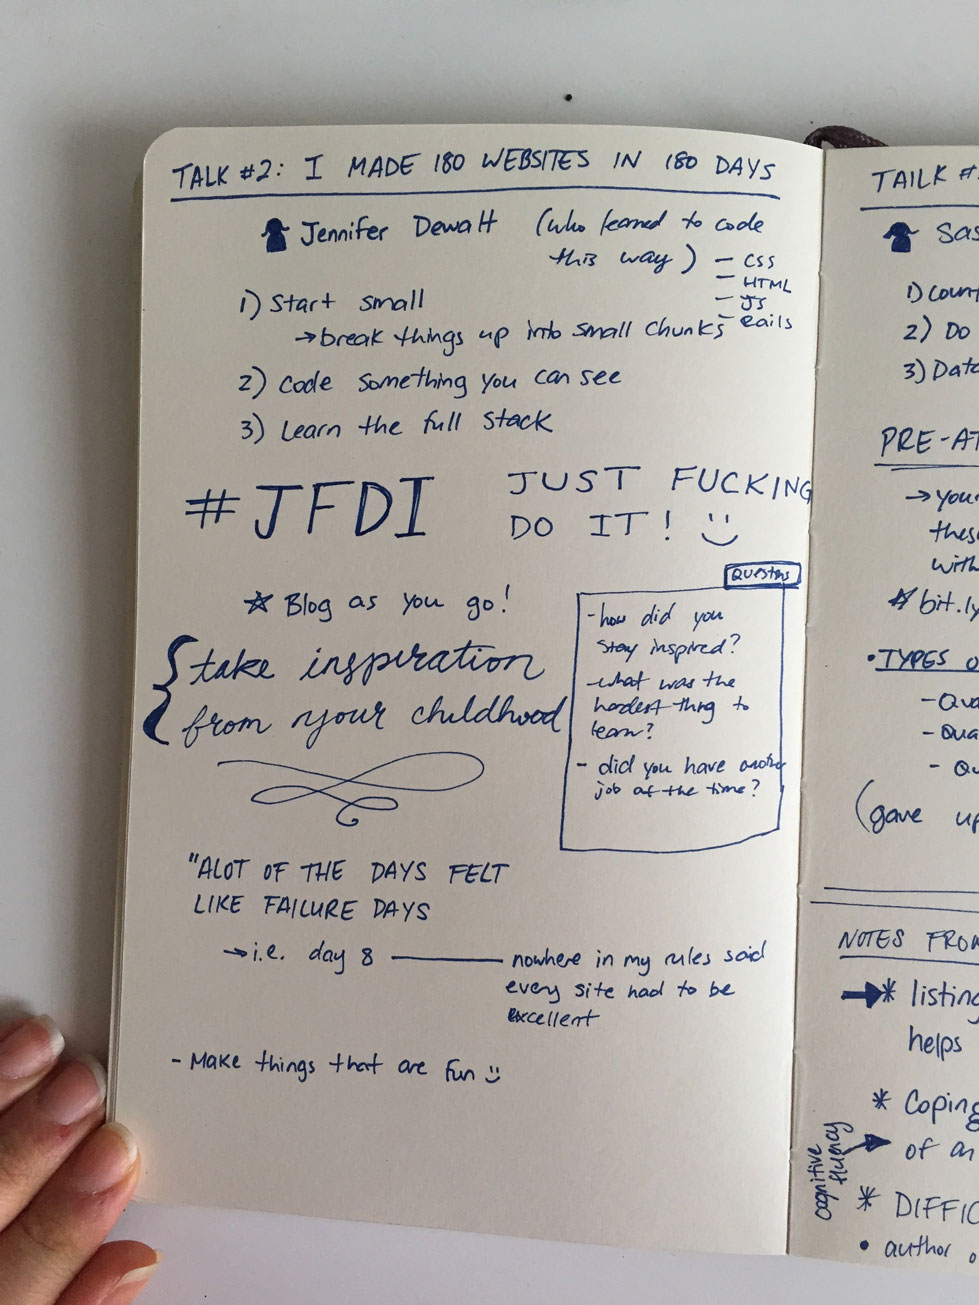 TALK #2: I MADE 180 WEBSITES IN 180 DAYS
Jennifer Dewalt (who learned to code
this way)
- CSS
- HTML
- JS
- Rails
1) Start small
→ break things up into small chunks
2) Code something you can see
3) Learn the full stack
#JFDI
JUST FUCKING
DO IT! :)
☆ Blog as you go!
{ take inspiration
from your childhood
QUESTIONS
- how did you
stay inspired?
- what was the
hardest thing to
learn?
- did you have another
job at the time?
"ALOT OF THE DAYS FELT
LIKE FAILURE DAYS
→ i.e. day 8 — nowhere in my rules said
every site had to be
excellent
- Make things that are fun :)
TAILK #
Sas
1) Count
2) Do
3) Data
PRE-AT
→ your
these
with
☆ bit.ly
• TYPES O
- Qua
- Qua
- Qu
(gave up
NOTES FROM
→ * listing
helps
* Coping
→ of an
cognitive
fluency
* DIFFIC
• author o